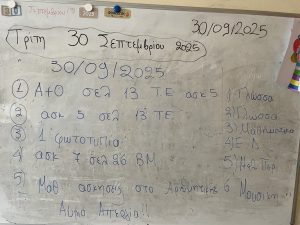 30/09/2025
Τρίτη 30 Σεπτεμβρίου 2025
30/09/2025
1 Α+Ο σελ 13 ΤΕ ασκ 5
2 ασκ 5 σελ 13 ΤΕ
3 1 φωτοτυπία
4 ασκ 7 σελ 26 ΒΜ
5 Μαθ ασκήσεις στο
Αύριο Απεργία!!
1) Γλώσσα
2) Γλώσσα
3) Μαθηματικά
4)
5)
6 Μουσική